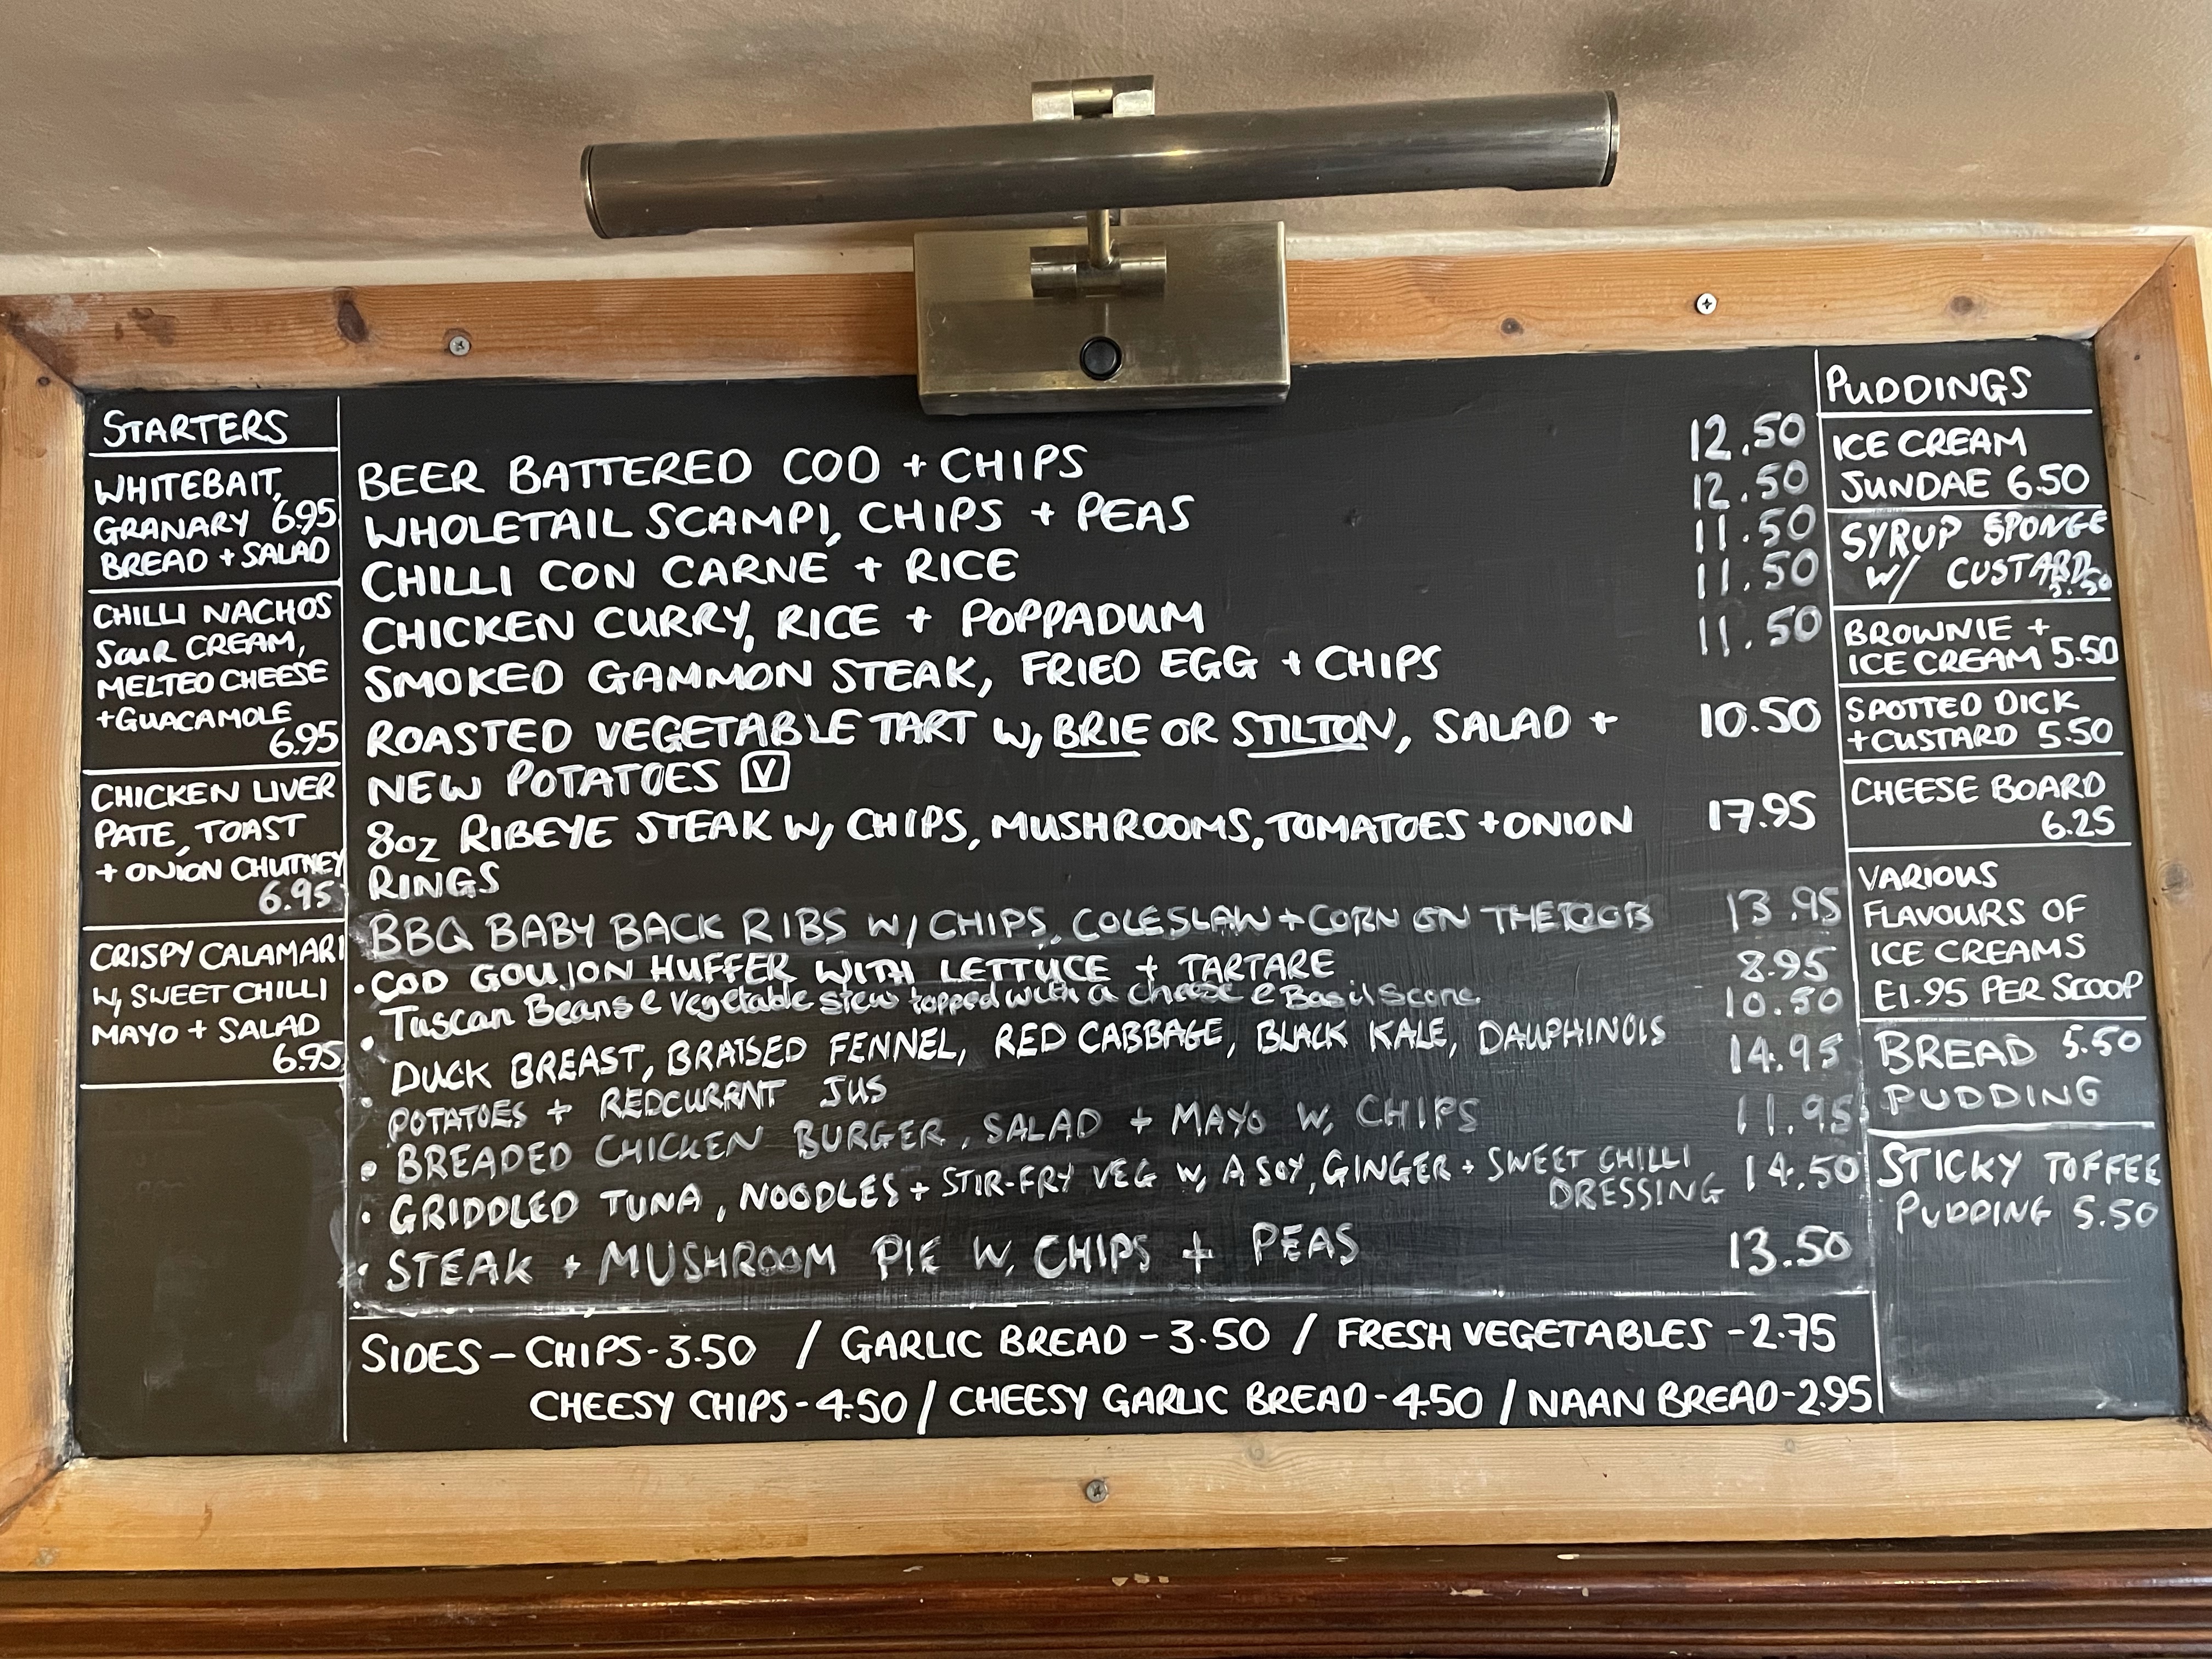 STARTERS
WHITEBAIT,
GRANARY 6.95
BREAD + SALAD
CHILLI NACHOS
SOUR CREAM,
MELTED CHEESE
+GUACAMOLE
6.95
CHICKEN LIVER
PATE, TOAST
+ ONION CHUTNEY
6.95
CRISPY CALAMARI
W, SWEET CHILLI
MAYO + SALAD
6.95
BEER BATTERED COD + CHIPS 12.50
WHOLETAIL SCAMPI, CHIPS + PEAS 12.50
CHILLI CON CARNE + RICE 11.50
CHICKEN CURRY, RICE + POPPADUM 11.50
SMOKED GAMMON STEAK, FRIED EGG + CHIPS 11.50
ROASTED VEGETABLE TART W, BRIE OR STILTON, SALAD + 10.50
NEW POTATOES V
8oz RIBEYE STEAK W, CHIPS, MUSHROOMS, TOMATOES + ONION 17.95
RINGS
BBQ BABY BACK RIBS W/ CHIPS, COLESLAW + CORN ON THE COB 13.95
• COD GOUJON HUFFER WITH LETTUCE + TARTARE 8.95
• Tuscan Beans & Vegetable stew topped with a cheese & Basil Scone. 10.50
• DUCK BREAST, BRAISED FENNEL, RED CABBAGE, BLACK KALE, DAUPHINOIS 14.95
POTATOES + REDCURRANT JUS
• BREADED CHICKEN BURGER, SALAD + MAYO W, CHIPS 11.95
• GRIDDLED TUNA, NOODLES + STIR-FRY VEG W, A SOY, GINGER + SWEET CHILLI 14.50
DRESSING
• STEAK + MUSHROOM PIE W, CHIPS + PEAS 13.50
SIDES - CHIPS - 3.50 / GARLIC BREAD - 3.50 / FRESH VEGETABLES - 2.75
CHEESY CHIPS - 4.50 / CHEESY GARLIC BREAD - 4.50 / NAAN BREAD - 2.95
PUDDINGS
ICE CREAM
SUNDAE 6.50
SYRUP SPONGE
W/ CUSTARD
5.50
BROWNIE +
ICE CREAM 5.50
SPOTTED DICK
+CUSTARD 5.50
CHEESE BOARD
6.25
VARIOUS
FLAVOURS OF
ICE CREAMS
£1.95 PER SCOOP
BREAD 5.50
PUDDING
STICKY TOFFEE
PUDDING 5.50